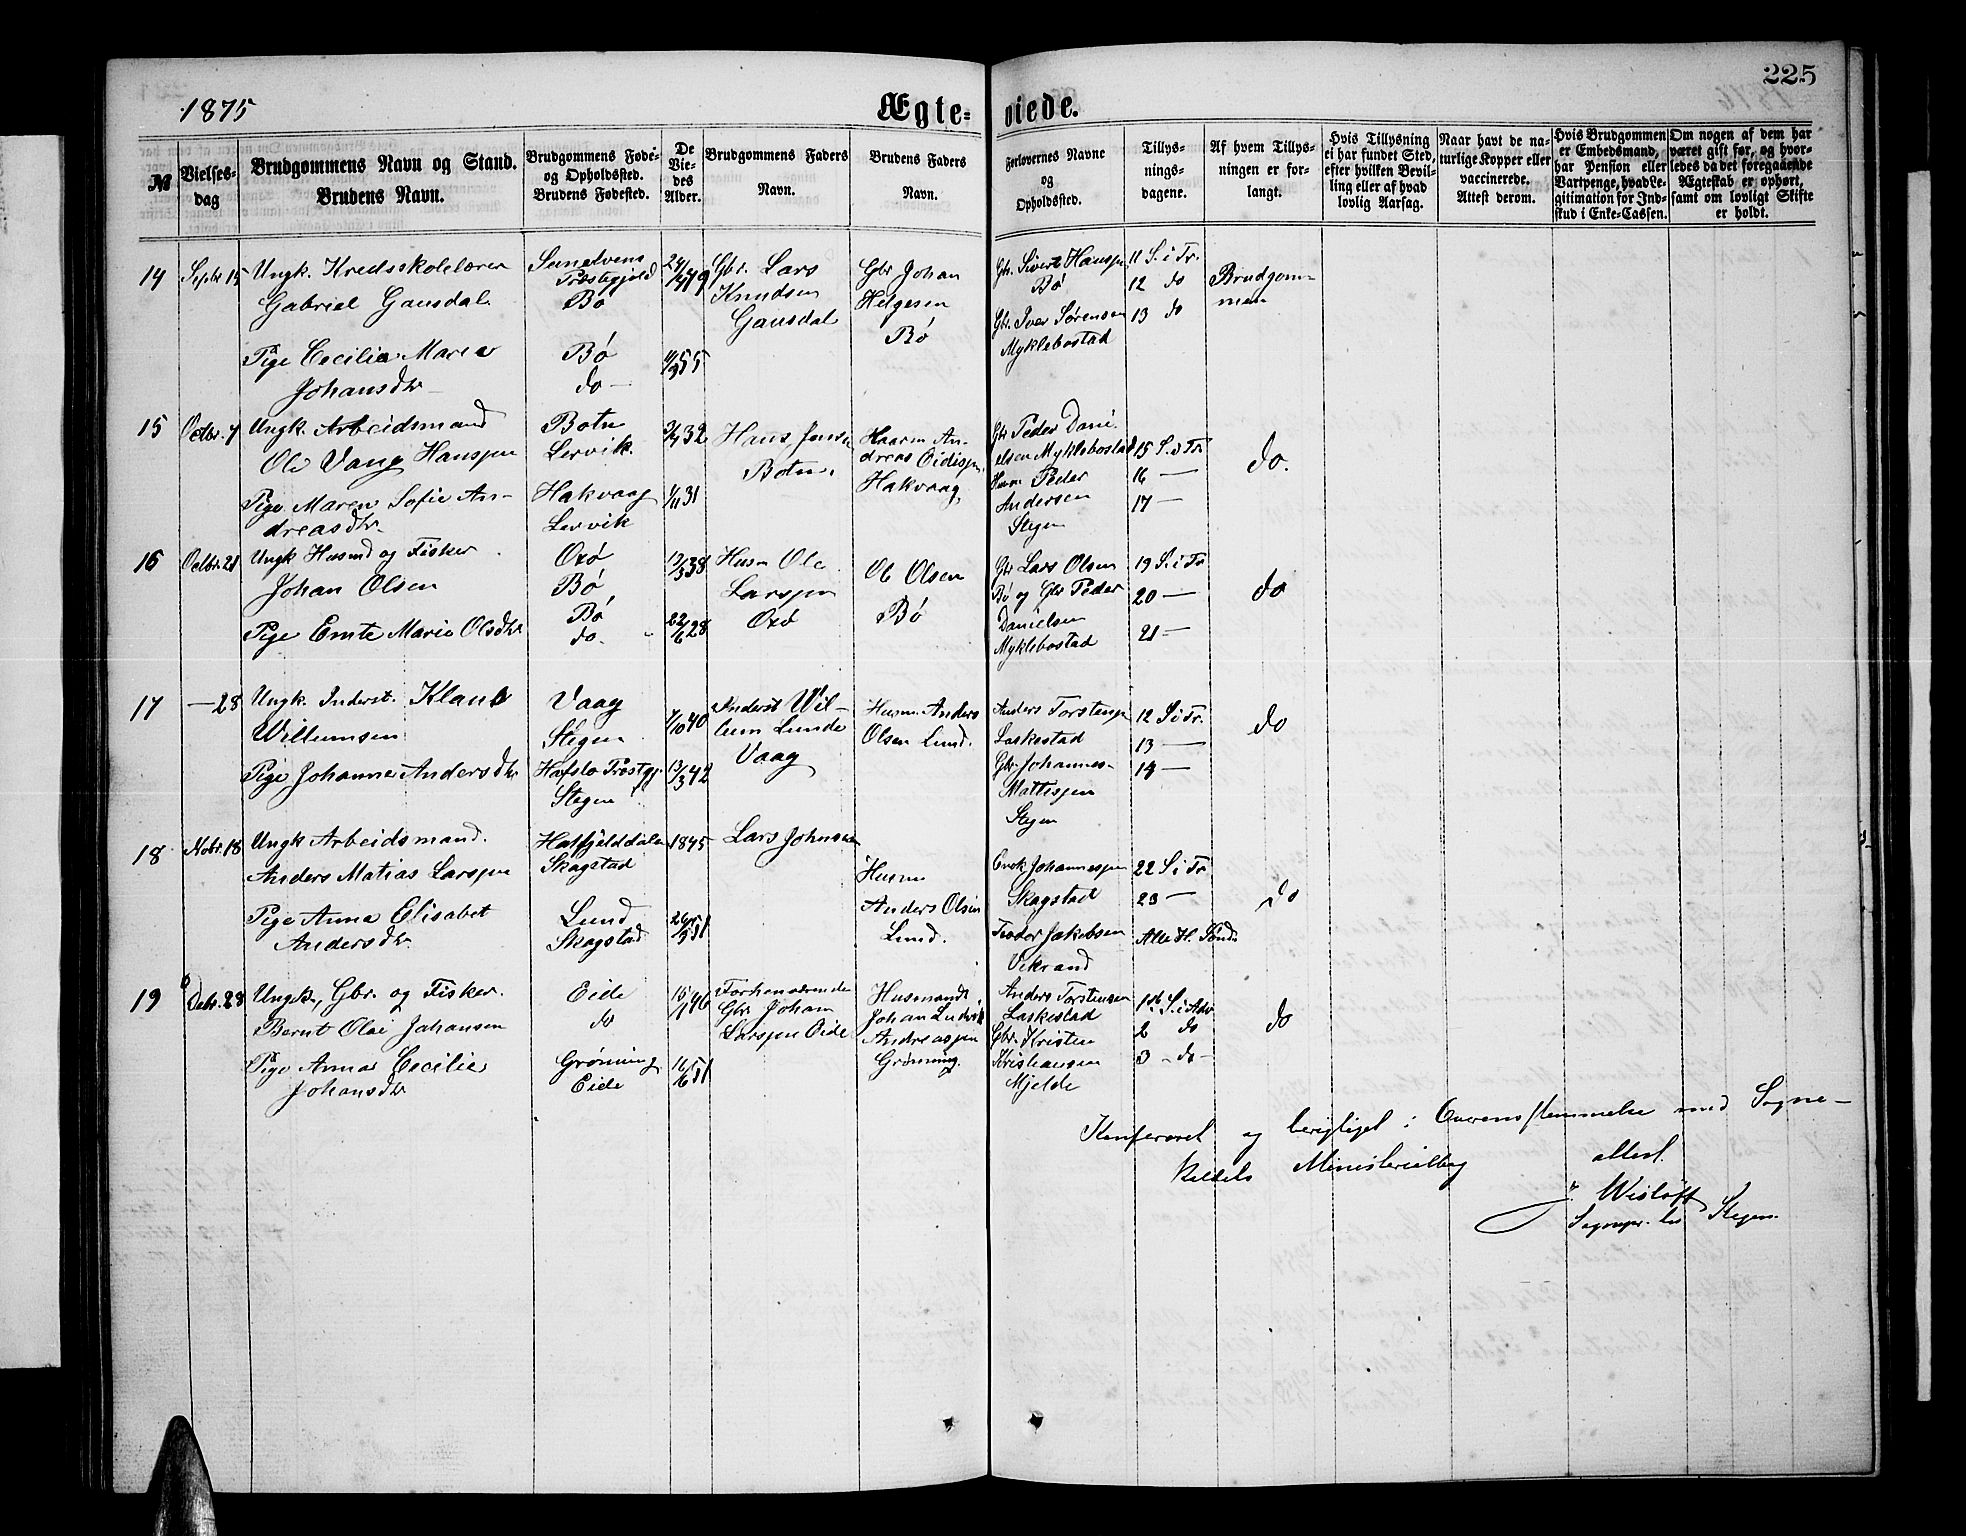 225
1875
Ægte- viede.
№
Vielses-dag
Brudgommens Navn og Stand.
Brudens Navn.
Brudgommens Føde-
og Opholdssted.
Brudens Fødested.
De Vie-des Alder.
Brudgommens Faders
Navn.
Brudens Faders
Navn.
Forlovernes Navne
og
Opholdssted.
Tillys-nings-dagene.
Af hvem Tillys-ningen er for-langt.
Hvis Tillysning ei har fundet Sted, efter hvilken Bevil-ling eller af hvad lovlig Aarsag.
Naar havt de na-turlige Kopper eller vaccinerede. Attest derom.
Hvis Brudgommen er Embedsmand, har Pension eller Vartpenge, hvad Le-gitimation for Ind-skud i Enke-Cassen.
Om nogen af dem har været gift før, og hvor-ledes da det foregaaende Ægteskab er ophørt, samt om lovligt Skifte er holdt.
14 Septbr 15
Ungk. Kredsskolelærer
Gabriel Gausdal
Pige Cecilia Maria
Johansdtr
Sunelvens
Præstegjeld
Bø
Bø
do
Gbr. Lars
Knudsen
Gausdal
Gbr Johan
Helgesen
Bø
Gbr. Sivert Hanssen
Bø
Gbr. Iver Sørensen
Myklebostad
11 S. i Tr.
12 do
13 do
Brudgom-
men
15 Octbr. 7
Ungk. Arbeidsmand
Ole Vang Hanssen
Pige Maren Sofie An-
dreasdtr.
Botn
Lervik.
Hakvaag
Lervik
32
31
Hans Jensen
Botn.
Husm An-
dreas
Hakvaag.
Gbr Peder Dani-
elsen Myklebostad
Husm Peder
Andersen
Stegen
15 S. i Tr.
16 —
17 —
do.
16 Octbr. 21
Ungk Husmd og Fisker
Johan Olsen
Pige Ernte Marie Olsdtr
Oxø
Bø
Bø
do.
12/3 38
22/6 28
Husm Ole
Larssen
Oxø
Ole Olsen
Bø
Gbr Lars Olsen
Bø og Gbr Peder
Danielsen
Myklebostad
19 S. i Tr
20 —
21 —
do
17 — 28
Ungk. Inderst. Klaus
Willumsen
Pige Johanna Andersdtr
Vaag
Stegen
Hafslo Præstgj.
Stegen
7/10 40
13/3 42
Inderst Wil-
lum Lunde
Vaag
Husm. Anders
Olsen Lund.
Anders Torstensen
Laskestad
Gbr. Johannes
Mattissen
Stegen
12 S. i Tr.
13 —
14 —
do
18 Nobr. 18
Ungk Arbeidsmand.
Anders Matias Larssen
Pige Anna Elisabet
Andersdtr.
Hatfjelddalen
Skagstad
Lund
Skagstad
1845
51
Lars Johnsen
Husm
Anders Olsen
Lund.
Johannessen
Skagstad
Teodor Jakobsen
Vikrand
22 S. i Tr
23 —
Alle H. Sønd.
do
19 Debr. 28
Ungk., Gbr. og Fisker.
Bernt Olai Johansen
Pige Anna Cecilie
Johansdtr
Eide
do
Grønning
Eide
46
16/6 51
Forhenværende
Gbr. Johan
Larssen Eide
Husmand
Johan Ludvik
Andreassen
Grønning.
Anders Torstensen
Laskestad
Gbr. Kristen
Kristiansen
Mjelde
1ste S. i Adv
2 do
3 - do -
do
Konfereret og berigtiget i Overensstemmelse med Sogne-
kaldets Ministerialbog attest.
J. Wisløff
Sognepr. til Stegen.